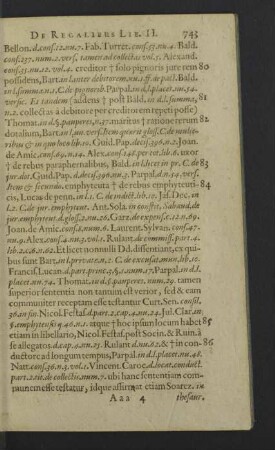 DE REGALIBUS LIB. II. 743
Bellon. d. cons. 22. nu. 7. Fab. Turret. cons. 55. nu. 4. Bald.
cons. 257. num. 2. vers. tamen ad collectas vol. 5. Alexand.
cons. 55. nu. 12. vol. 4. creditor † solo pignoris jure rem 80
possidens, Bart. in l. inter debitorem. nu. 1. ff. de pact. Bald.
in d. l. summa. n. 2. C. de pignorib. Parpal. in d. l. placet. nu. 54.
versic. Et tandem (addens † post Bald. in d. l. summa, 81
n. 2. collectas à debitore per creditorem repeti posse)
Thomat. in d. §. pauperes. n. 37. maritus † ratione rerum 82
dotalium, Bart. in l. un. vers. Item quærit gloss. C. de mulie-
ribus & in quo loco lib. 10. Guid. Pap. decis. 396. n. 2. Joan.
de Amic. cons. 69. n. 14. Alex. cons. 146. per tot. lib. 6. uxor
† de rebus paraphernalibus, Bald. in l. licet in pr. C. de 83
jur. dot. Guid. Pap. d. decis. 396. n. 3. Parpal. n. d. nu. 195. vers.
Item & secundò. emphyteuta † de rebus emphyteuti- 84
cis, Lucas de penn. in l. 1. C. de indict. lib. 10. Jas. Dec. in
l. 2. C. de jur. emphyteut. Ant. Sola. in constit. Sabaud. de
jur. emphyteut. d. gloss. 2. nu. 26. Garz. de expens. c. 12. n. 69.
Joan. de Amic. consil. 26. num. 6. Laurent. Sylvan. cons. 47.
nu. 9. Alex. consil. 4. nu. 3. vol. 2. Ruland. de commiss. part. 4.
lib. 2. c. 2. n. 16. & 62. Et licet nonnulli DD. dissentiant, ex qui-
bus sunt Bart. in l. privatæ. n. 2. C. de excusat. mun. lib. 10.
Francis. Lucan. d. part. prent. 5. §. 1. num. 17. Parpal. in d. l.
placet. nu. 74. Thomat. in d. §. pauperes. num. 29. tamen
superior sententia non tantum est verior, sed & eam
communiter receptam esse testantur Curt. Sen. consil.
36. in fin. Nicol. Festas. d. part. 2. cap. 4. nu. 24. Jul. Clar. in
§. emphyteusis. q. 46. n. 2. itque † hoc ipsum locum habet 85
etiam in libellario, Nicol. Festas. post Socin. & Ruin. à
se allegatos. d. cap. 4. nu. 25. Ruland. nu. 62. & † in con- 86
ductore ad longum tempus, Parpal. in d. l. placet. nu. 46.
Natt. cons. 36. n. 3. vol. 1. Vincent. Caroc. d. locat. conduct.
part. 2. tit. de collectis. num. 7. ubi hanc sententiam com-
munem esse testatur, idque affirmat etiam Soarez. in
Aaa 4 thesaur.